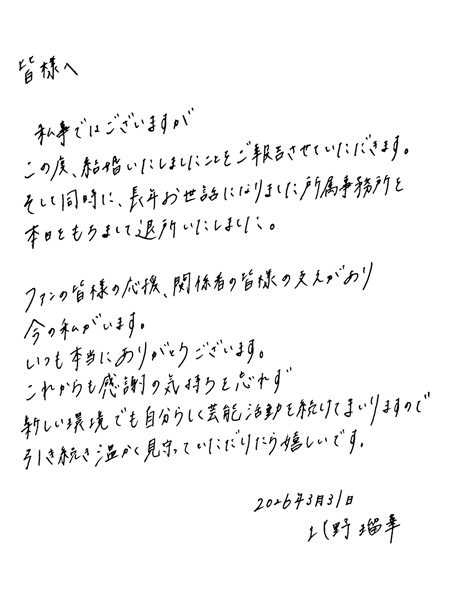 皆様へ
私事ではございますが
この度、結婚いたしましたことをご報告させていただきます。
そして同時に、長年お世話になりました所属事務所を
本日をもちまして退所いたしました。
ファンの皆様の応援、関係者の皆様の支えがあり
今の私がいます。
いつも本当にありがとうございます。
これからも感謝の気持ちを忘れず
新しい環境でも自分らしく芸能活動を続けてまいりますので
引き続き温かく見守っていただけたら嬉しいです。
2026年3月31日
北野 瑠華